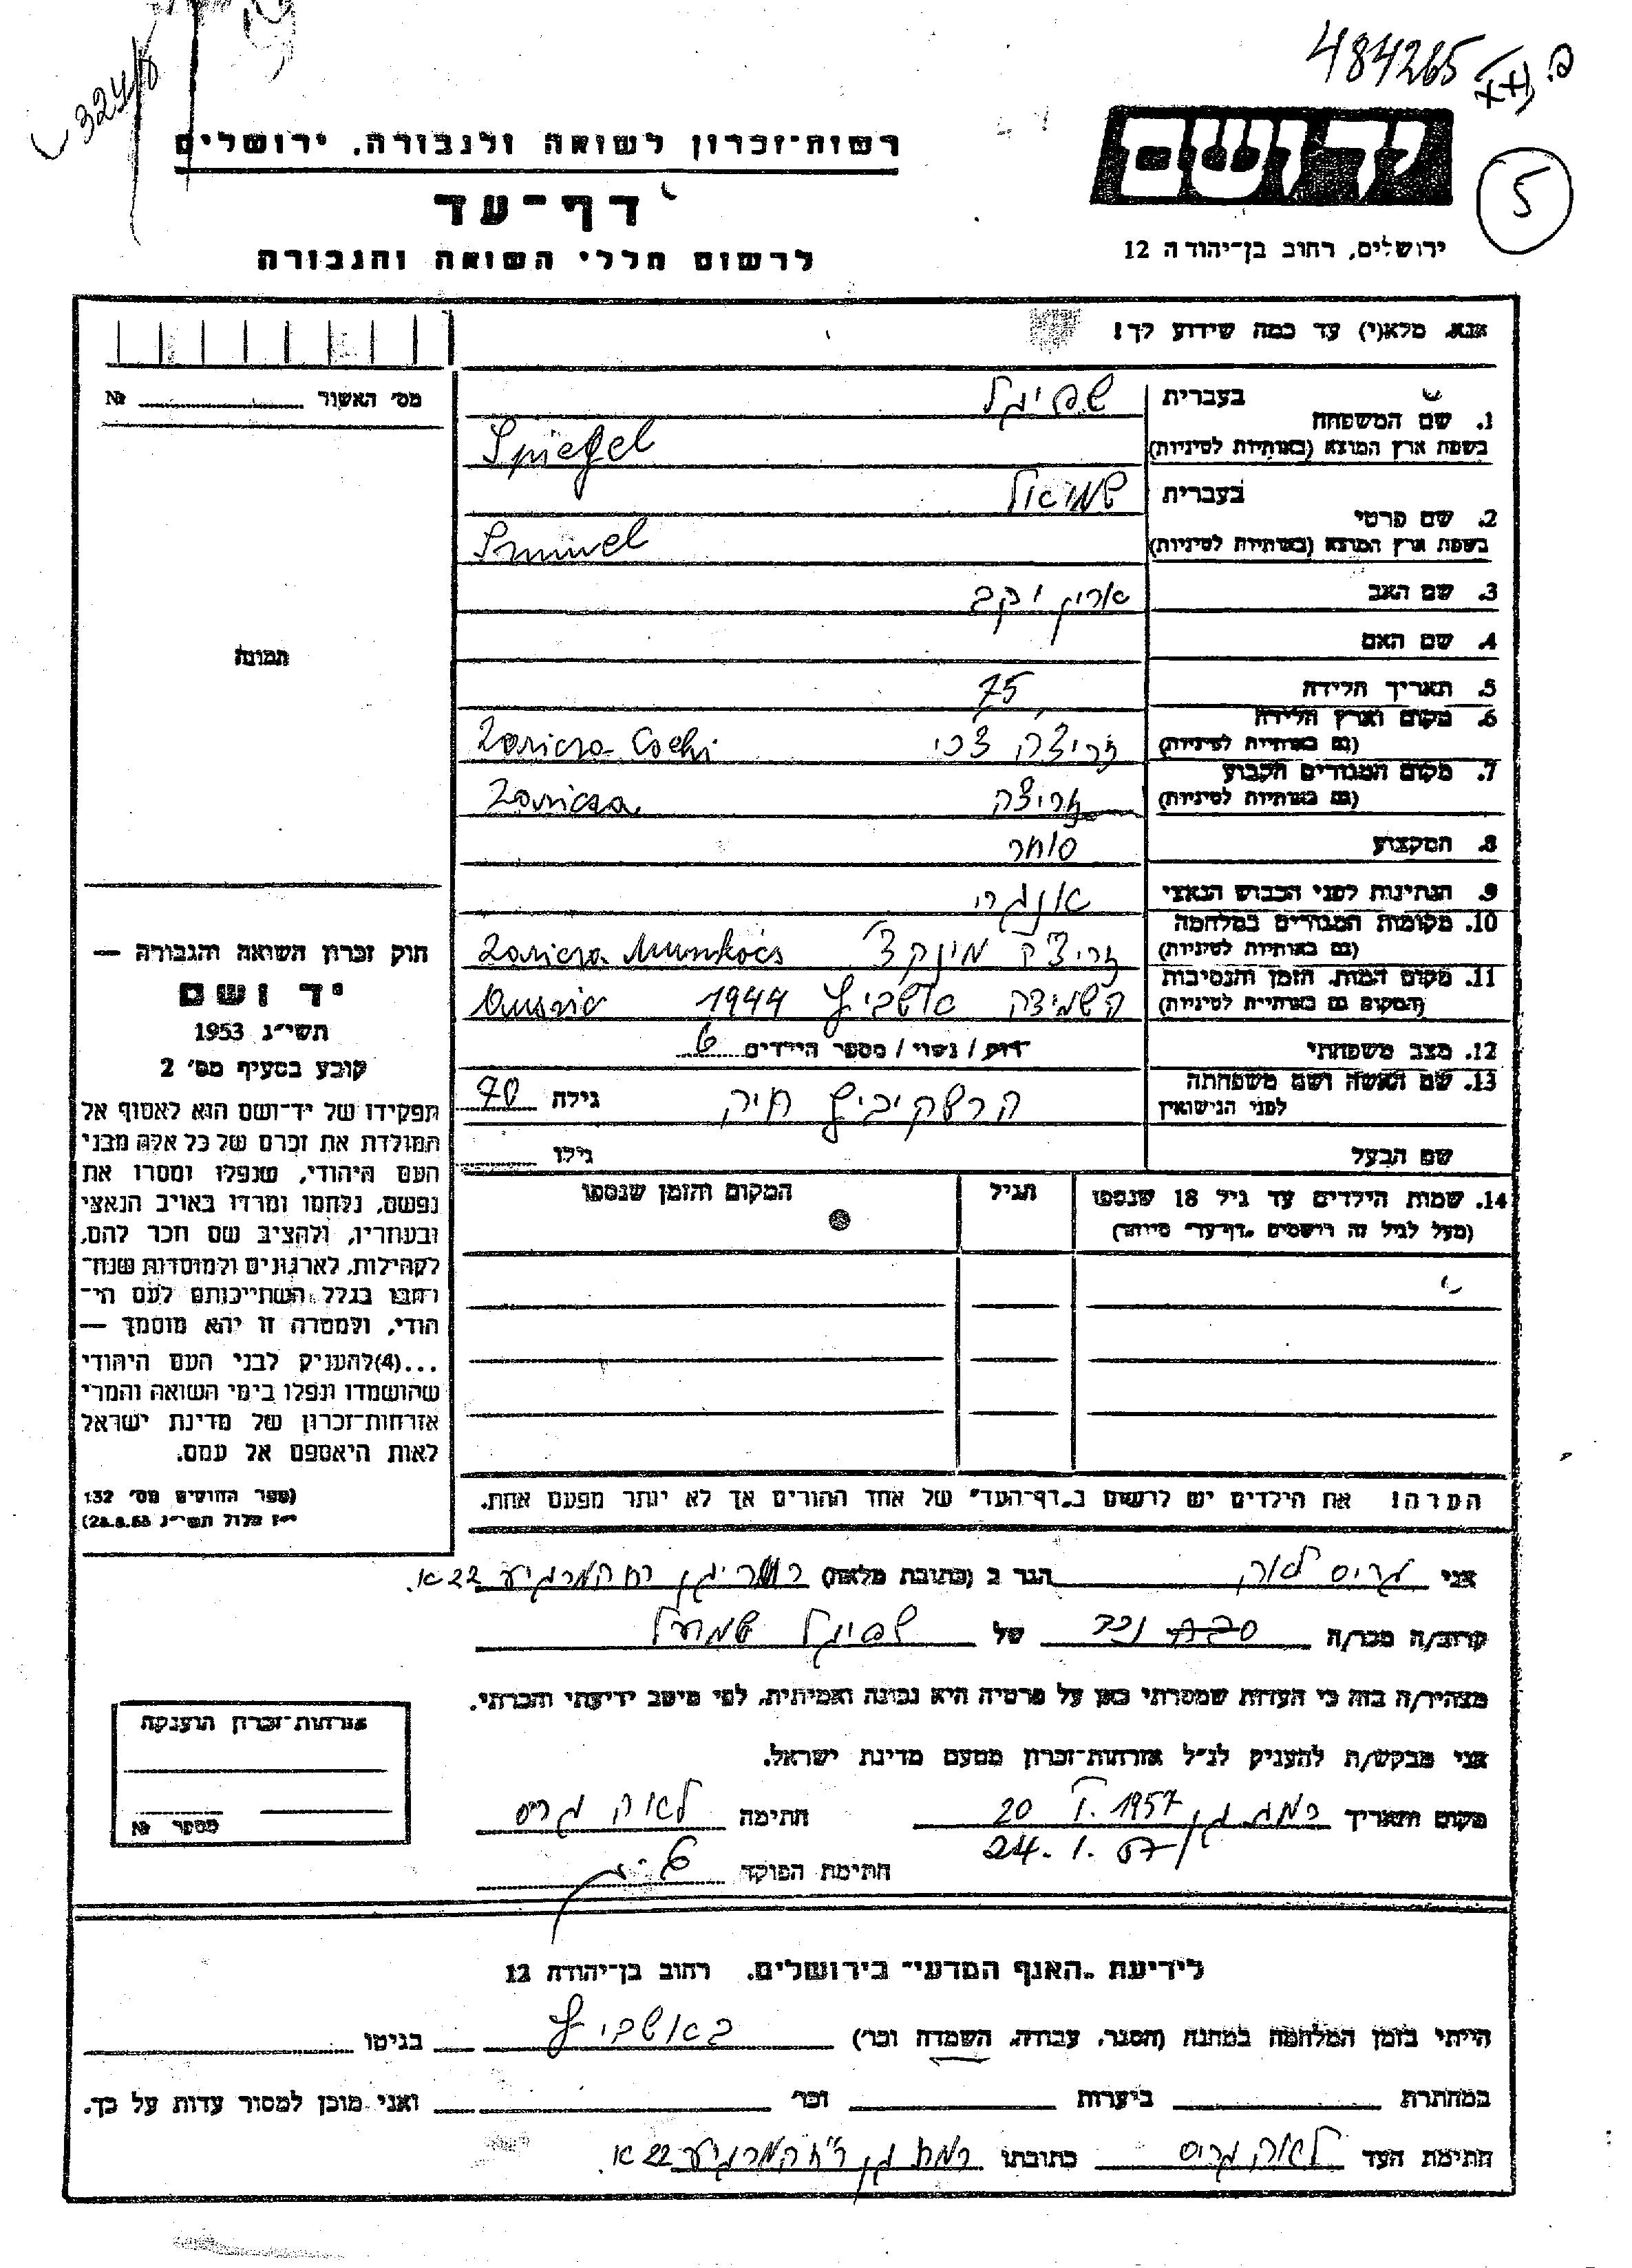 484265
324/8
5
יד ושם
רשות-זכרון לשואה ולגבורה, ירושלים
דף-עד
לרשום חללי השואה והגבורה
ירושלים, רחוב בן-יהודה 12
אנא, מלא(י) עד כמה שידוע לך!
מס' האשור № 
תמונה
1. שם המשפחה
בעברית שפיגל
בשפת ארץ המוצא (באותיות לטיניות) Spiegel
2. שם פרטי
בעברית שמואל
בשפת ארץ המוצא (באותיות לטיניות) Smuel
3. שם האב
4. שם האם
5. תאריך הלידה 75
6. מקום וארץ הלידה
(גם באותיות לטיניות) זריצה צכי Zaricza Csehi
7. מקום המגורים הקבוע
(גם באותיות לטיניות) זריצה Zaricza
8. המקצוע סוחר
9. הנתינות לפני הכבוש הנאצי אונגרי
10. מקומות המגורים במלחמה
(גם באותיות לטיניות) זריצה מונקץ' Zaricza Munkács
11. מקום המות, הזמן והנסיבות
(המקום גם באותיות לטיניות) השמדה אושביץ 1944
12. מצב משפחתי רווק / נשוי / מספר הילדים 6
13. שם האשה ושם משפחתה
לפני הנישואין הרשקוביץ חיה גילה 70
שם הבעל גילו
14. שמות הילדים עד גיל 18 שנספו הגיל המקום והזמן שנספו
(מעל לגיל זה רושמים "דף-עד" מיוחד)
הערה! את הילדים יש לרשום ב"דף-העד" של אחד ההורים אך לא יותר מפעם אחת.
חוק זכרון השואה והגבורה —
יד ושם
תשי"ג 1953
קובע בסעיף מס' 2
תפקידו של יד-ושם הוא לאסוף אל
המולדת את זכרם של כל אלה מבני
העם היהודי, שנפלו ומסרו את
נפשם, נלחמו ומרדו באויב הנאצי
ובעוזריו, ולהציב שם וזכר להם,
לקהילות, לארגונים ולמוסדות שנח-
רבו בגלל השתייכותם לעם הי-
הודי, ולמטרה זו יהא מוסמך —
...(4)להעניק לבני העם היהודי
שהושמדו ונפלו בימי השואה והמרי
אזרחות-זכרון של מדינת ישראל
לאות היאספם אל עמם.
(ספר החוקים מס' 132
י"ז אלול תשי"ג 28.8.53)
אני גריס לאה הגר ב (כתובת מלאה) רמת גן רח המרגיע 22 א.
קרוב/ה מכר/ה נכד של שפיגל שמואל
מצהיר/ה בזה כי העדות שמסרתי כאן על פרטיה היא נכונה ואמיתית, לפי מיטב ידיעתי והכרתי.
אני מבקש/ת להעניק לנ"ל אזרחות-זכרון מטעם מדינת ישראל.
מקום ותאריך רמת גן 20 I. 1957 חתימה לאה גריס
24. 1. 57
חתימת הפוקד
אזרחות-זכרון הוענקה
מספר №
לידיעת "האגף המדעי" בירושלים, רחוב בן-יהודה 12
הייתי בזמן המלחמה במחנה (הסגר, עבודה, השמדה וכו') באושביץ בגיטו
במחתרת ביערות וכו' ואני מוכן למסור עדות על כך.
חתימת העד לאה גריס כתובתו רמת גן רח' המרגיע 22 א.